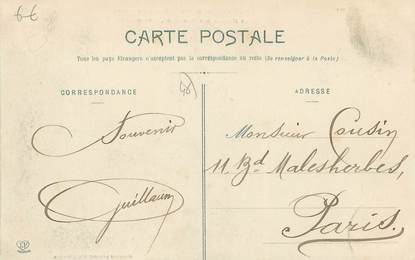 6-6
CARTE POSTALE
Tous les pays étrangers n'acceptent pas la correspondance au recto (Se renseigner à la Poste)
CORRESPONDANCE
ADRESSE
Souvenir
Guillaum
Monsieur Cousin
11. Bd Malesherbes,
Paris.